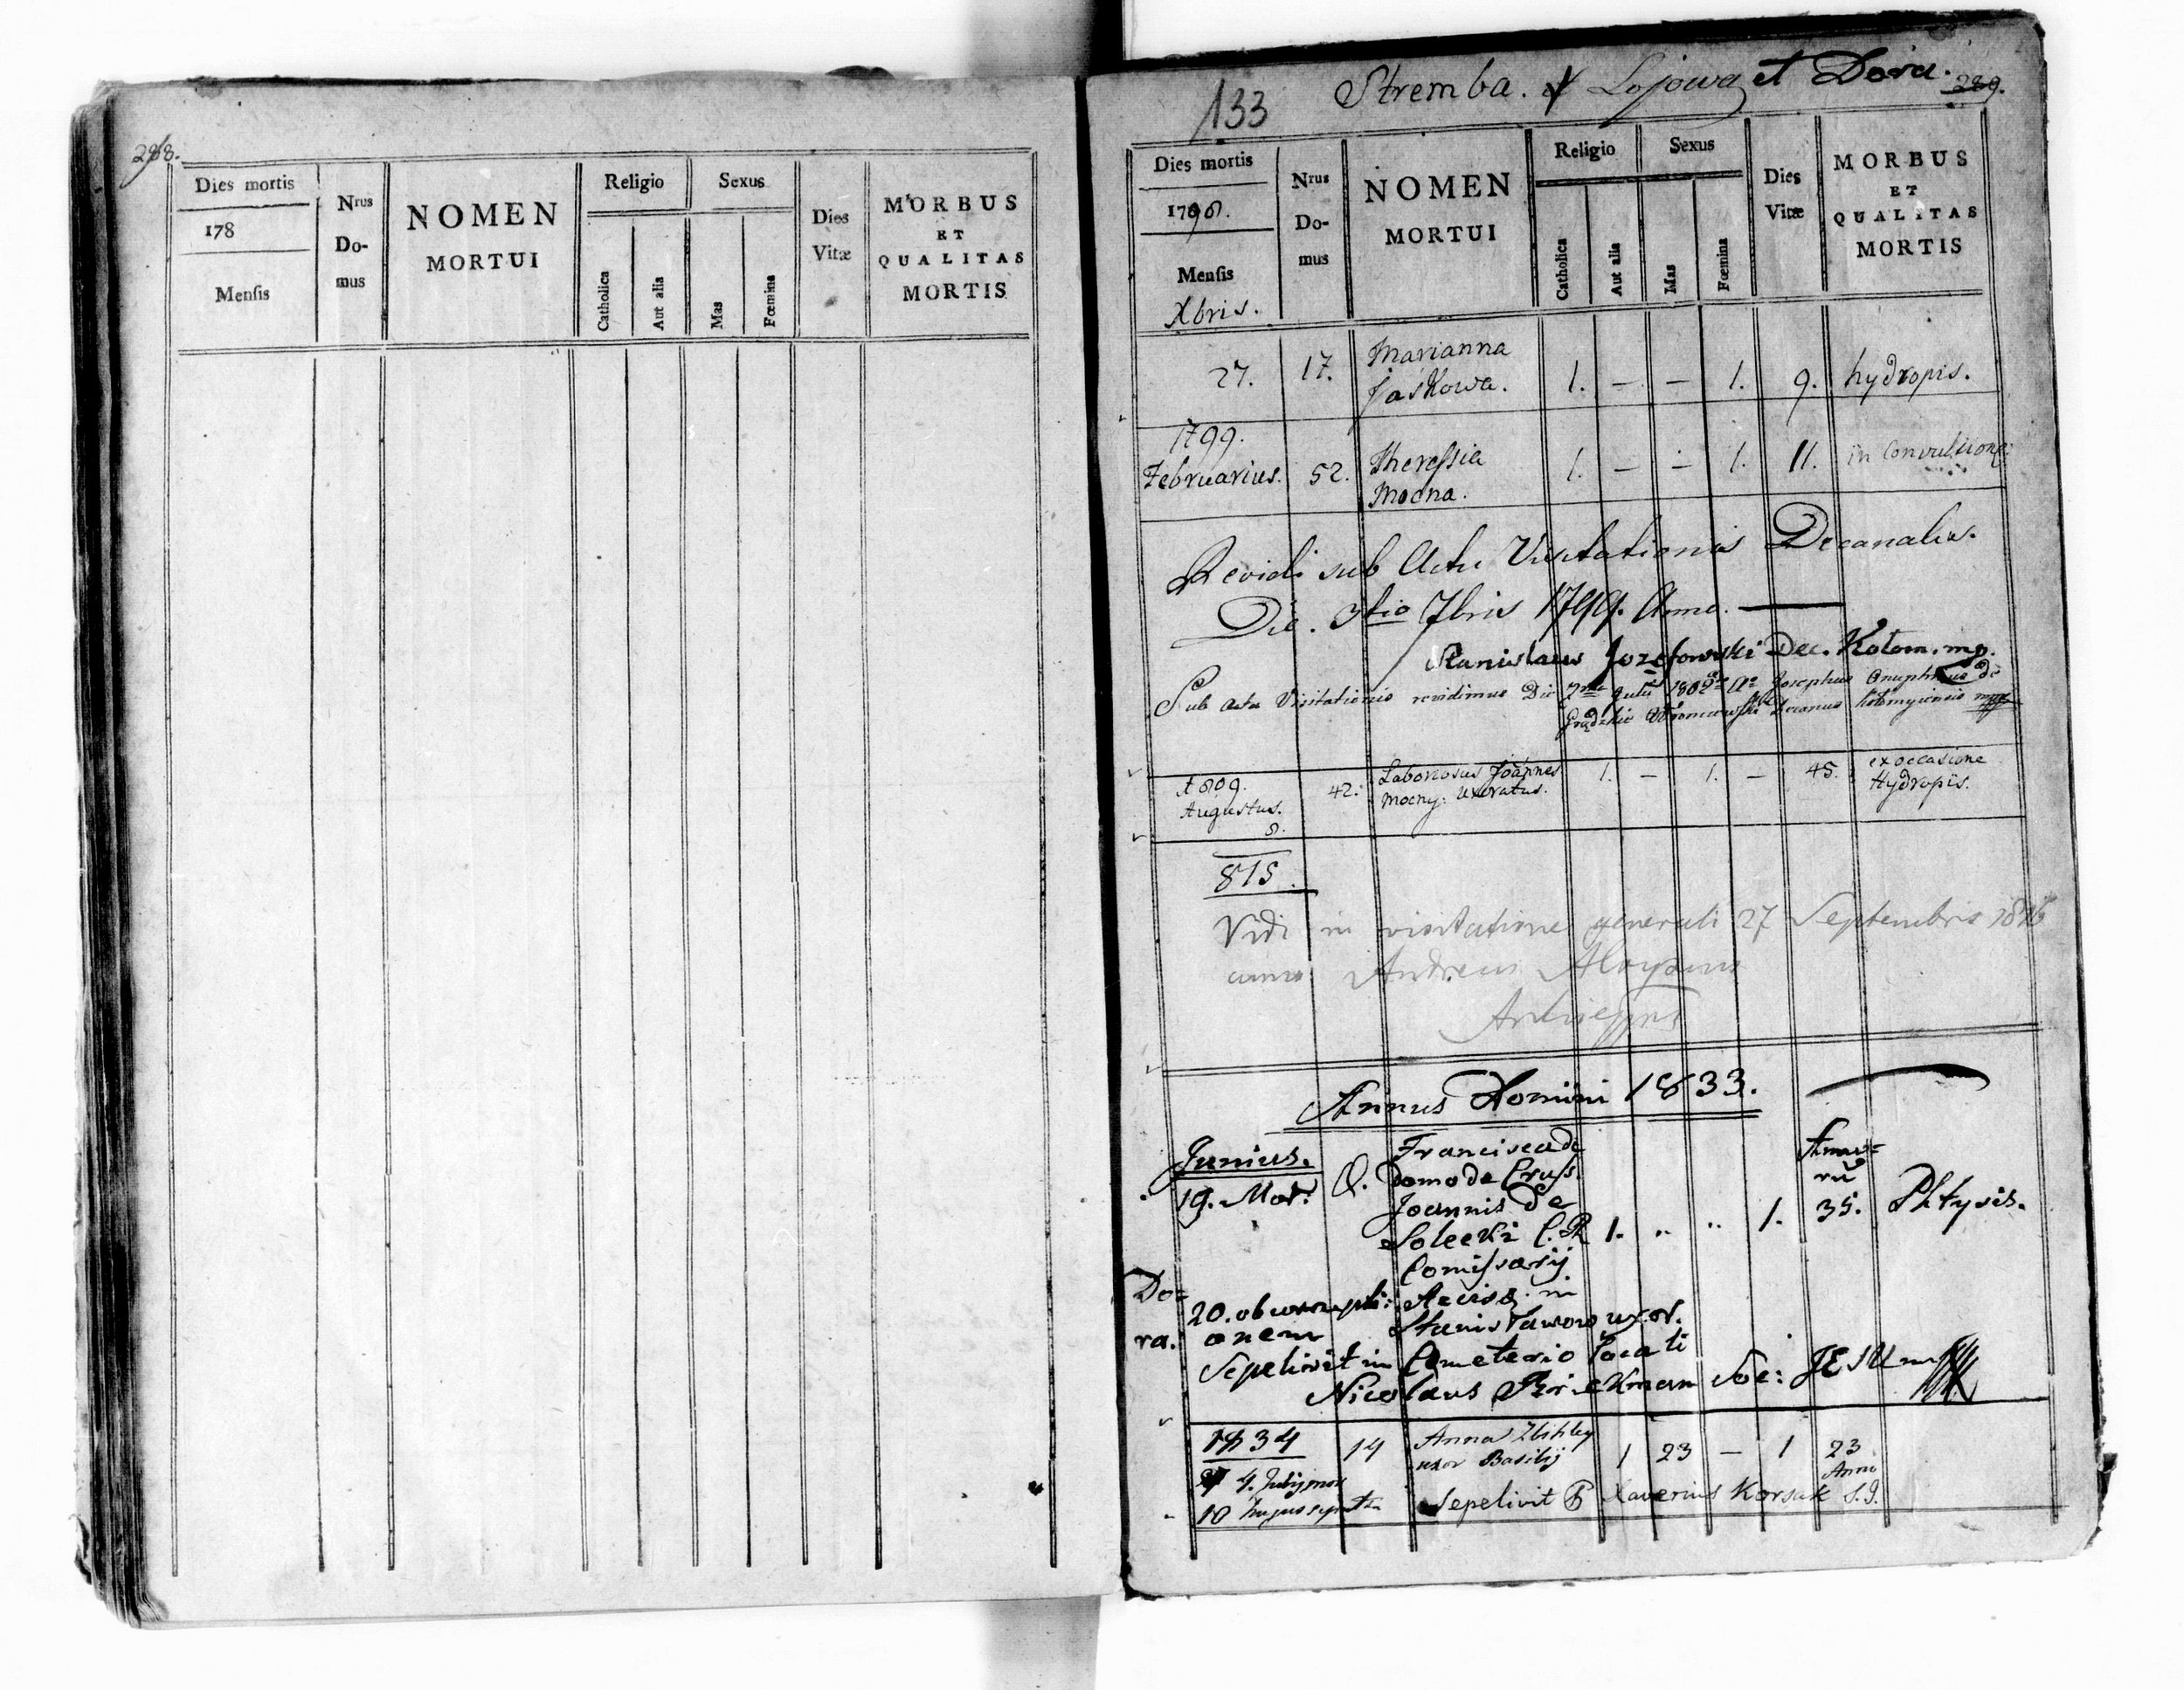 288.
Dies mortis
178
Mensis
Nrus
Do-
mus
NOMEN
MORTUI
Religio
Catholica
Aut alia
Sexus
Mas
Fœmina
Dies
Vitæ
MORBUS
ET
QUALITAS
MORTIS
133
Stremba. et Lojowa et Dora.
289.
Dies mortis
1798.
Mensis
Xbris.
Nrus
Do-
mus
NOMEN
MORTUI
Religio
Catholica
Aut alia
Sexus
Mas
Fœmina
Dies
Vitæ
MORBUS
ET
QUALITAS
MORTIS
27. 17. Marianna
Jaskowa. 1. — — 1. 9. hydropis.
1799.
Februarius. 52. Theressia
Mocna. 1. — — 1. 11. in Convulsione
Revidi sub Actu Visitationis Decanalis.
Die. 3tio 7bris 1799. Anno. —
Stanislaus Jozefowski Dec. Kołom. mp.
Sub actu Visitationis revidimus Die 7ma Julii 1802 Ao Josephus Onuphrius de
Decanus Kołomyiensis mpp
1809.
Augustus.
8. 42. Laboriosus Joannes
Mocny: Uxoratus. 1. — 1. — 45. ex occasione
Hydropis.
815.
Vidi in visitatione generali 27 Septembris
Andreas Aloysius
Annus Domini 1833.
Junius.
19. Mor: 0. Francisca de
domo de Cruss.
Joannis de
Solecki C. R. 1. .. .. 1. 35. Phtysis.
Comissarij
Do=
ra. 20. ob
in
Stanisławow uxor.
Sepelivit in Cemeterio locali
Nicolaus Soc: JESU mpp
1834 14 Anna
uxor Basilij 1 23 — 1 23
Anni
4. Julij mor
10 hujus
Sepelivit P Xaverius Korsak S.J.